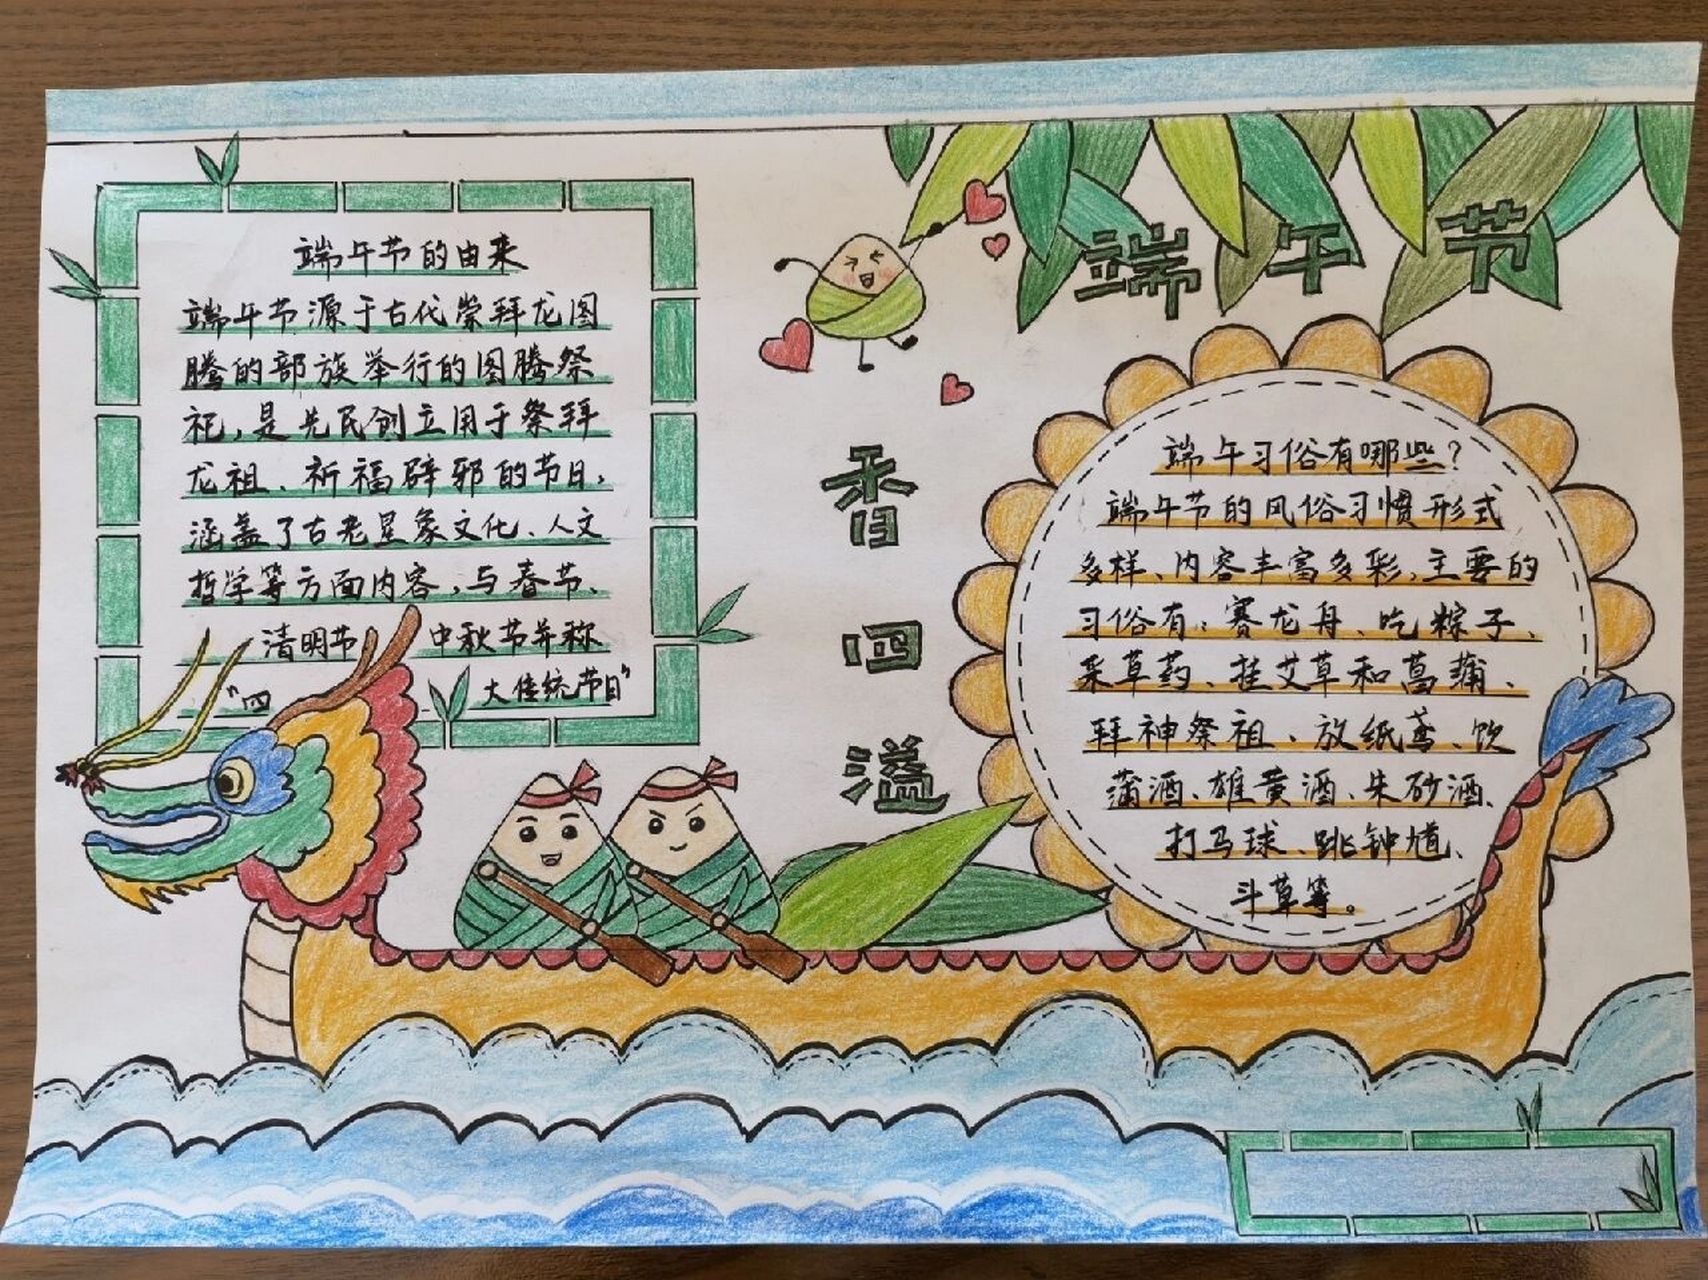 端午节的由来
端午节源于古代崇拜龙图
腾的部族举行的图腾祭
祀,是先民创立用于祭拜
龙祖、祈福辟邪的节日,
涵盖了古老星象文化、人文
哲学等方面内容,与春节、
清明节 中秋节并称
“四 大传统节日”
端午节
香
四
溢
端午习俗有哪些?
端午节的风俗习惯形式
多样、内容丰富多彩,主要的
习俗有:赛龙舟、吃粽子、
采草药、挂艾草和菖蒲、
拜神祭祖、放纸鸢、饮
蒲酒、雄黄酒、朱砂酒、
打马球、跳钟馗、
斗草等。